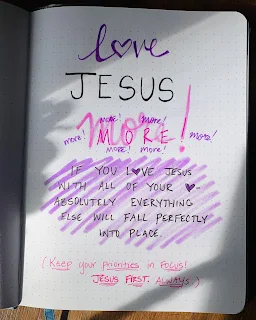 love
JESUS
more!
more! more!
more! MORE more!
more! more!
IF YOU L♥VE JESUS
WITH ALL OF YOUR ♥-
ABSOLUTELY EVERYTHING
ELSE WILL FALL PERFECTLY
INTO PLACE.
(Keep your priorities in focus!
JESUS FIRST. ALWAYS.)